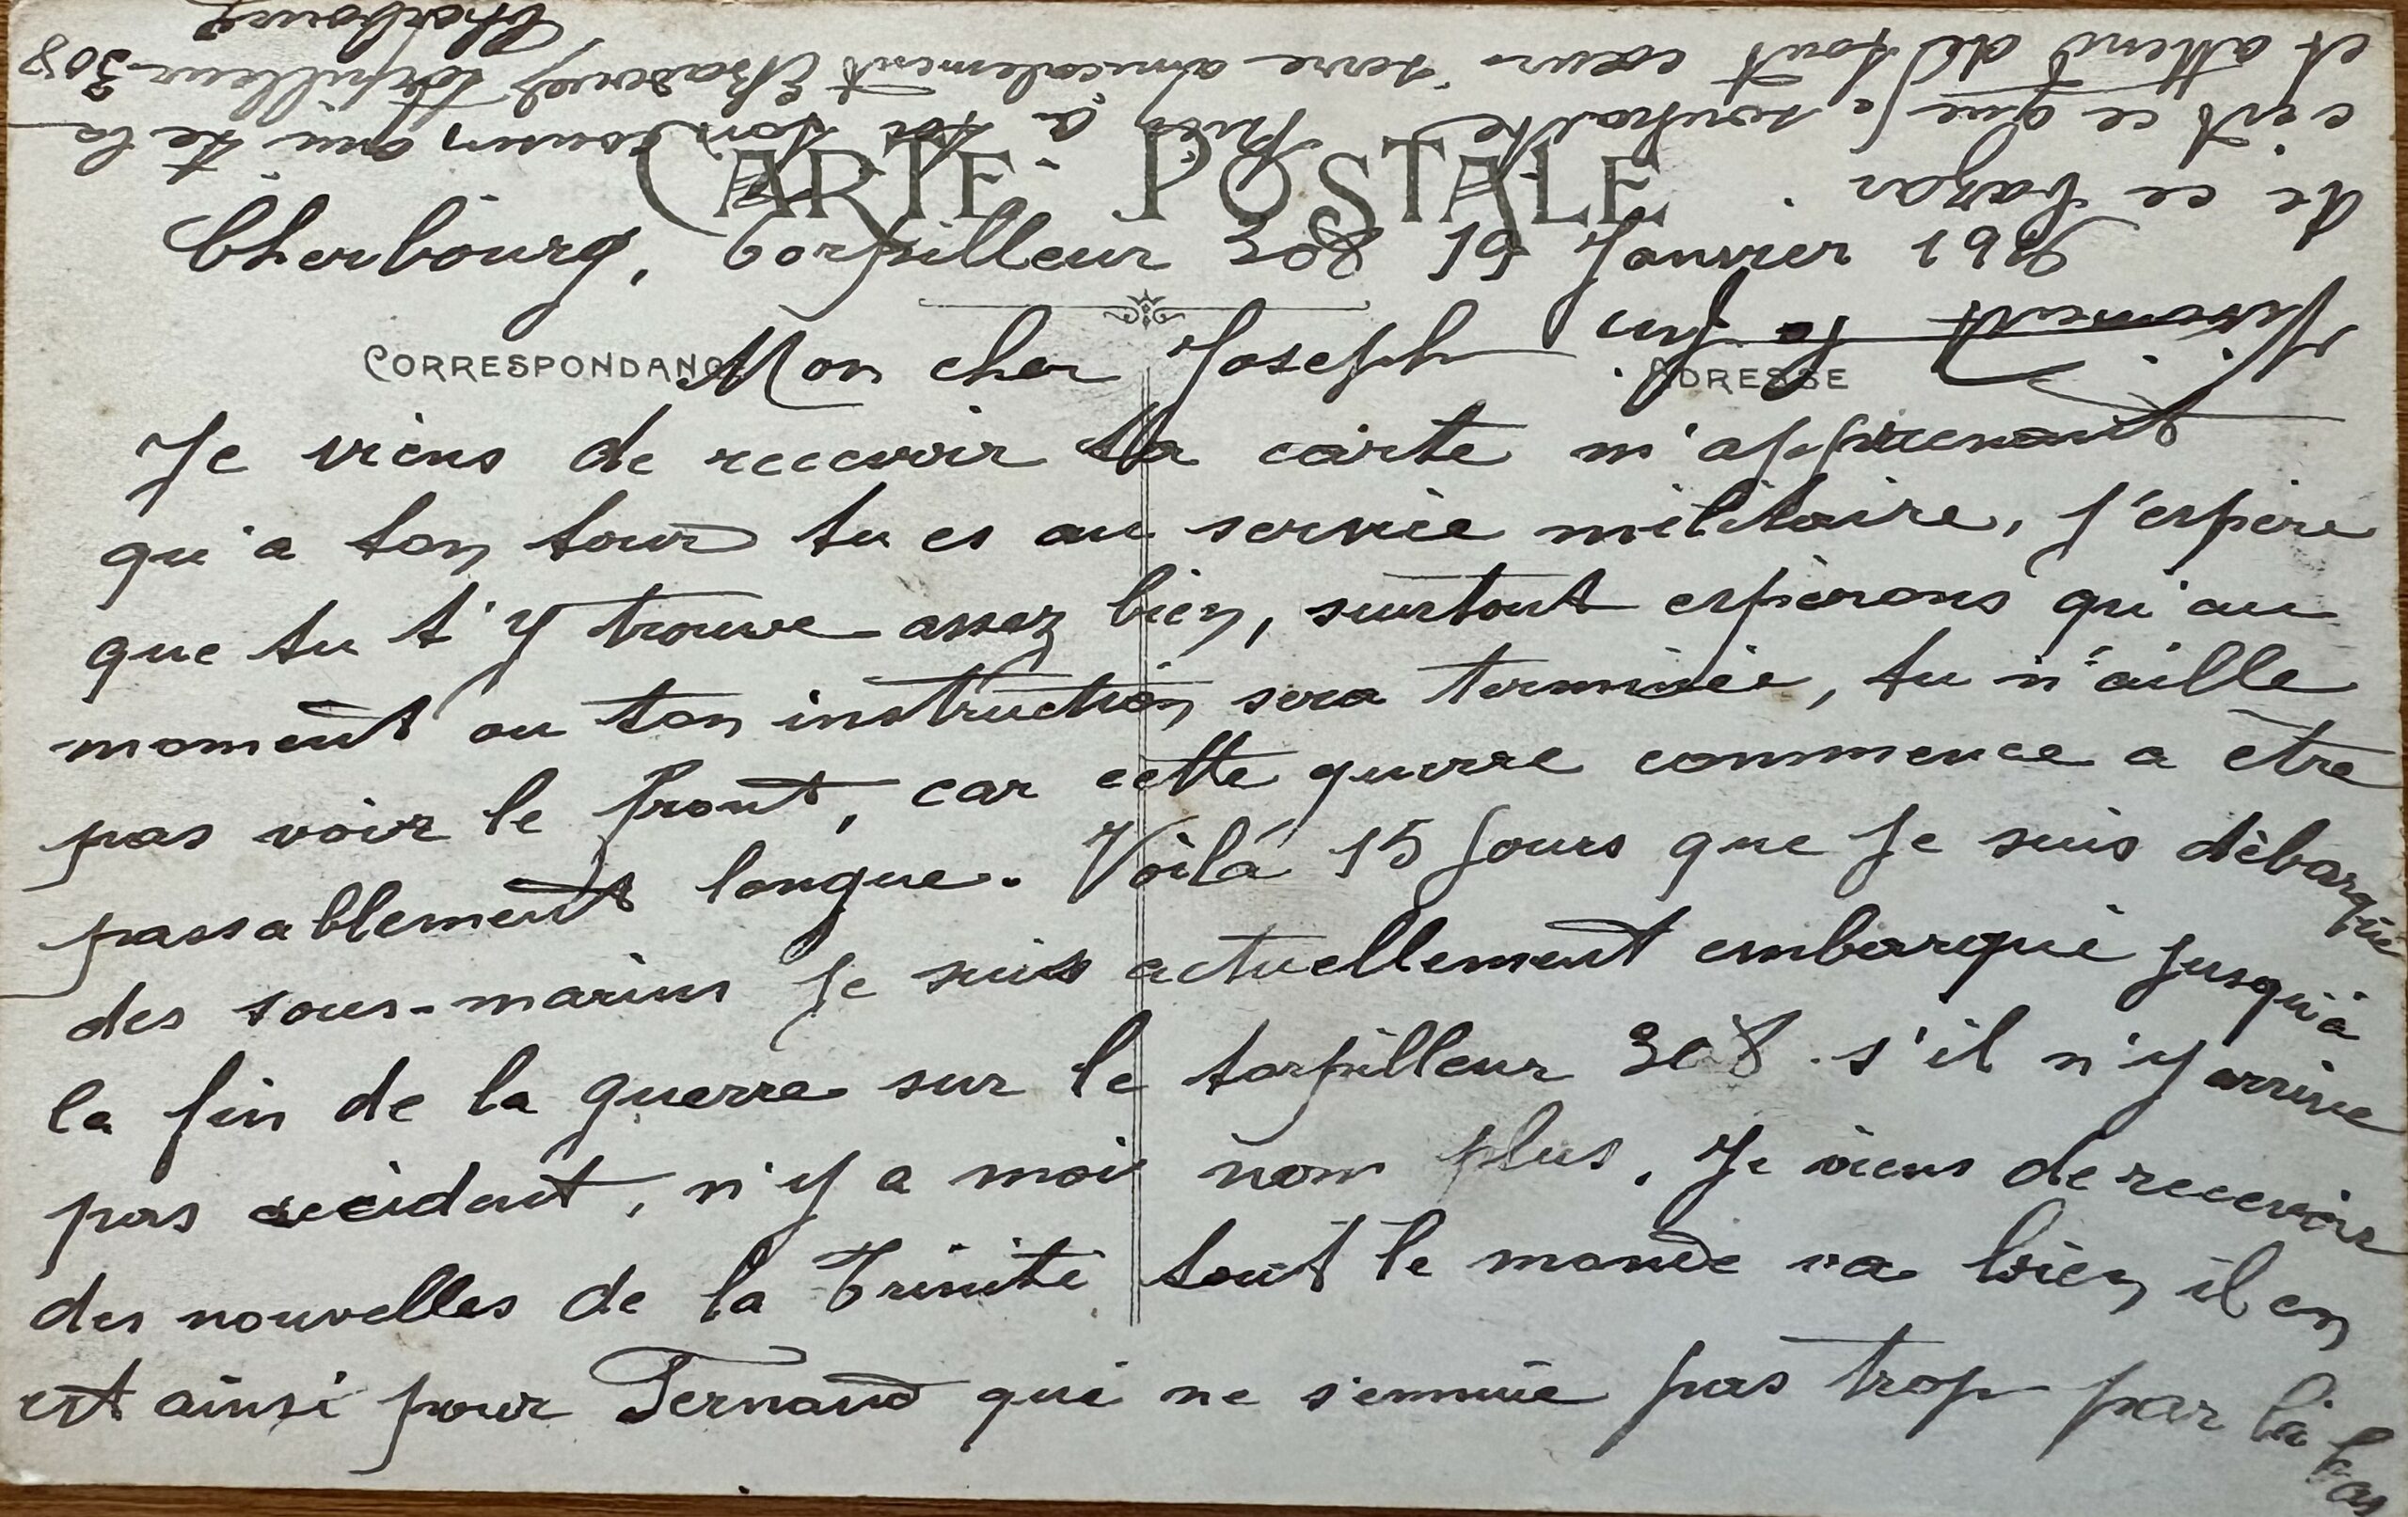 CARTE POSTALE
Cherbourg, torpilleur 308 19 Janvier 1916
CORRESPONDANCE
ADRESSE
Mon cher Joseph
Je viens de recevoir ta carte m'apprenant
qu'a ton tour tu es au service militaire, j'espère
que tu t'y trouve assez bien, surtout espèrons qu'au
moment ou ton instruction sera terminée, tu n'aille
pas voir le front, car cette guerre commence a être
passablement longue. Voilà 15 jours que je suis débarqué
des sous-marins je suis actuellement embarqué jusqu'à
la fin de la guerre sur le torpilleur 308 s'il n'y arrive
pas accident, n'y a moi non plus. Je viens de recevoir
des nouvelles de la Trinité tout le monde va bien il en
est ainsi pour Fernand qui ne s'ennuie pas trop par là bas
Vivement la fin
de ce bazar
c'est ce que je souhaite
et attend de tout coeur
à toi ton cousin qui te la
serre amicalement torpilleur 308
Cherbourg